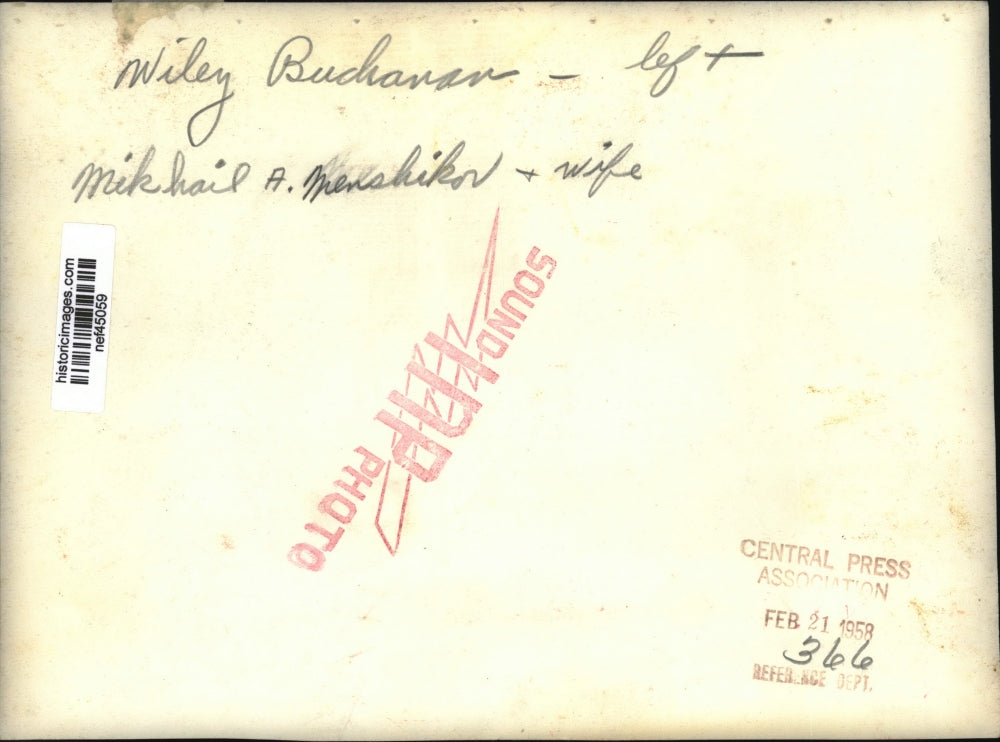 Wiley Buchanan - left
Mikhail A. Menshikov + wife
historicimages.com
nef45059
SOUND
INP
PHOTO
CENTRAL PRESS
ASSOCIATION
FEB 21 1958
366
REFERENCE DEPT.